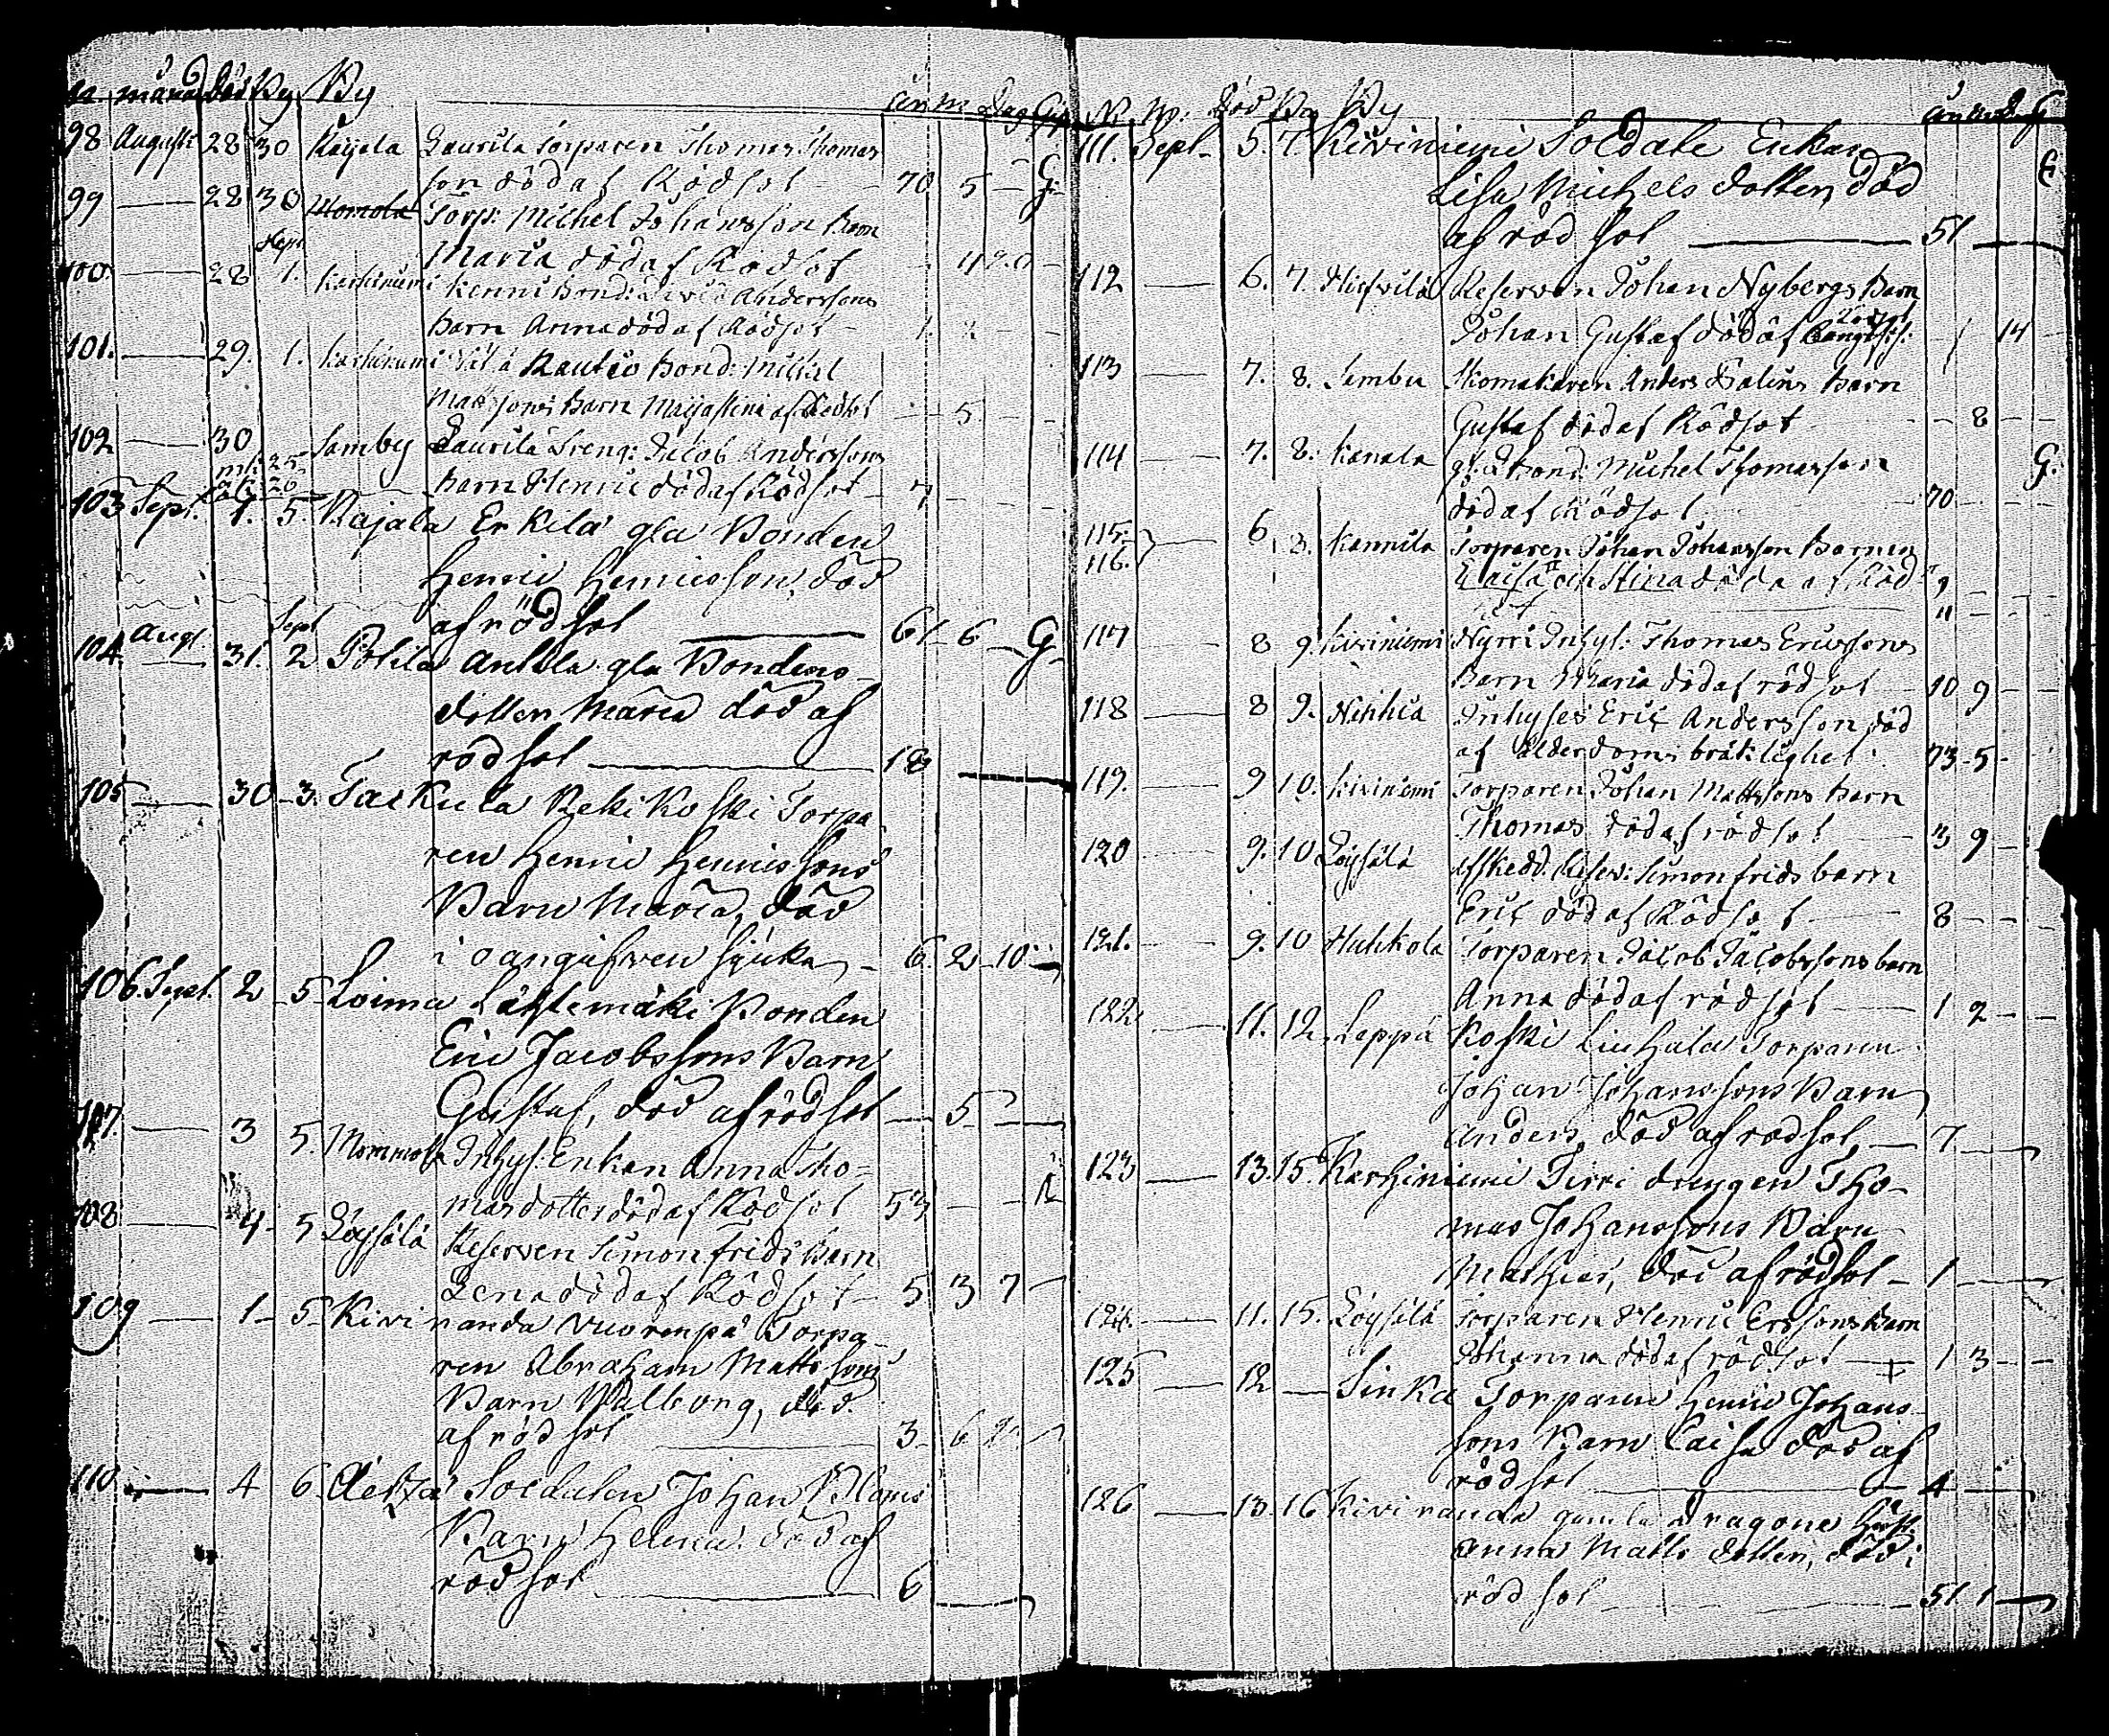 N. månad död Beg By år m Dag Gift
98 Augusti 28 30 Rajala Laurila Torparen Thomas Thomas
son död af Rödsot 70 5 - G
99 — 28 30 Momola Torp: Michel Johansson Barn
Maria död af Rödsot
100 — 28 Sept 1. Karhiniemi Bond: Andersons
Barn Anna död af Rödsot - 1.
101. — 29. 1. Karhiniemi Rautio Bond: Mickel
Mattssons Barn Maijastina af Rödsot - 5
102 — 30 Samby Laurila Dreng: Jacob Anderssons
Barn Henric död af Rödsot - 7
103 Sept. 1. 5. Rajala Erkilä gla Bonden
Henric Henricsson, död
af rödsot — 61 - 6 - G
104. Augt — 31. Sept 2 Anttila gla Bondens
dotter Maria död af
rödsot — 18
105 — 30 - 3. Taskula Kekikoski Torpa
ren Henric Henricssons
Barn Maria, död
i oangifven sjuka - 6. 2 - 10
106 Sept. 2 - 5 Loima Bonden
Eric Jacobssons Barn
Gustaf, död af rödsot — 5
107. — 3 5. Mommola Inhys: Enkan Anna Tho-
masdotter död af Rödsot
108 — 4 - 5 Löysälä Reserven Simon Frids Barn
Lena död af Rödsot - 5 3 7
109 — 1 - 5 Kiviranda Vuorenpä Torpa-
ren Abraham Mattssons
Barn Walborg, död
af rödsot — 3 - 6
110 — 4 6 Soldaten Johan Bloms
Barn Helena död af
rödsot — 6
N. M. Död Beg By år m d. g
111. Sept - 5. 7. Kiviniemi Soldate Enkan
Lisa Michels dotter, död
af rödsot — 51
112 — 6. 7. Reserven Johan Nybergs Barn
Johan Gustaf död af - 1 14
113 — 7. 8. Sembu Skomakaren Anders Barn
Gustaf död af Rödsot - 8
114 — 7. 8. Kanala gl: Bond: Michel Thomasson G.
död af Rödsot 70
115. — 6. 8. Kannila Torparen Johan Johansson Barnen
116. Caisa och Stina döda af Röd
sot
117 — 8 9. Kiviniemi Nyrri Inhys: Thomas Ericssons
Barn Maria död af rödsot — 10 9
118 — 8 9. Nihhia Inhyses Eric Andersson död
af Ålderdoms bräklighet: 73 - 5
119. — 9 10. Kiviniemi Torparen Johan Mattssons Barn
Thomas död af rödsot — 3 9
120 — 9. 10 Löysälä Afskedd. Reserv: Simon Frids barn
Eric död af Rödsot — 8
121. — 9. 10 Huhkola Torparen Jacob Jacobssons barn
Anna död af rödsot — 1 2
122. — 11. 12. Leppä koski Liuhala Torparen
Johan Johanssons Barn
Anders, död af rödsot — 7
123 — 13. 15. Karhiniemi Tirri drengen Tho-
mas Johanssons Barn
Mathias, död af rödsot — 1
124. — 11. 15. Löysälä Torparen Henric Erssons Barn
Johanna död af rödsot — 1 3
125 — 12 — Sinka Torparen Henric Johans-
sons Barn Caisa död af
rödsot — 4
126 — 13. 16 Kiviranda gamla Dragone
Anna Matts dotter, död i
rödsot — 51 1